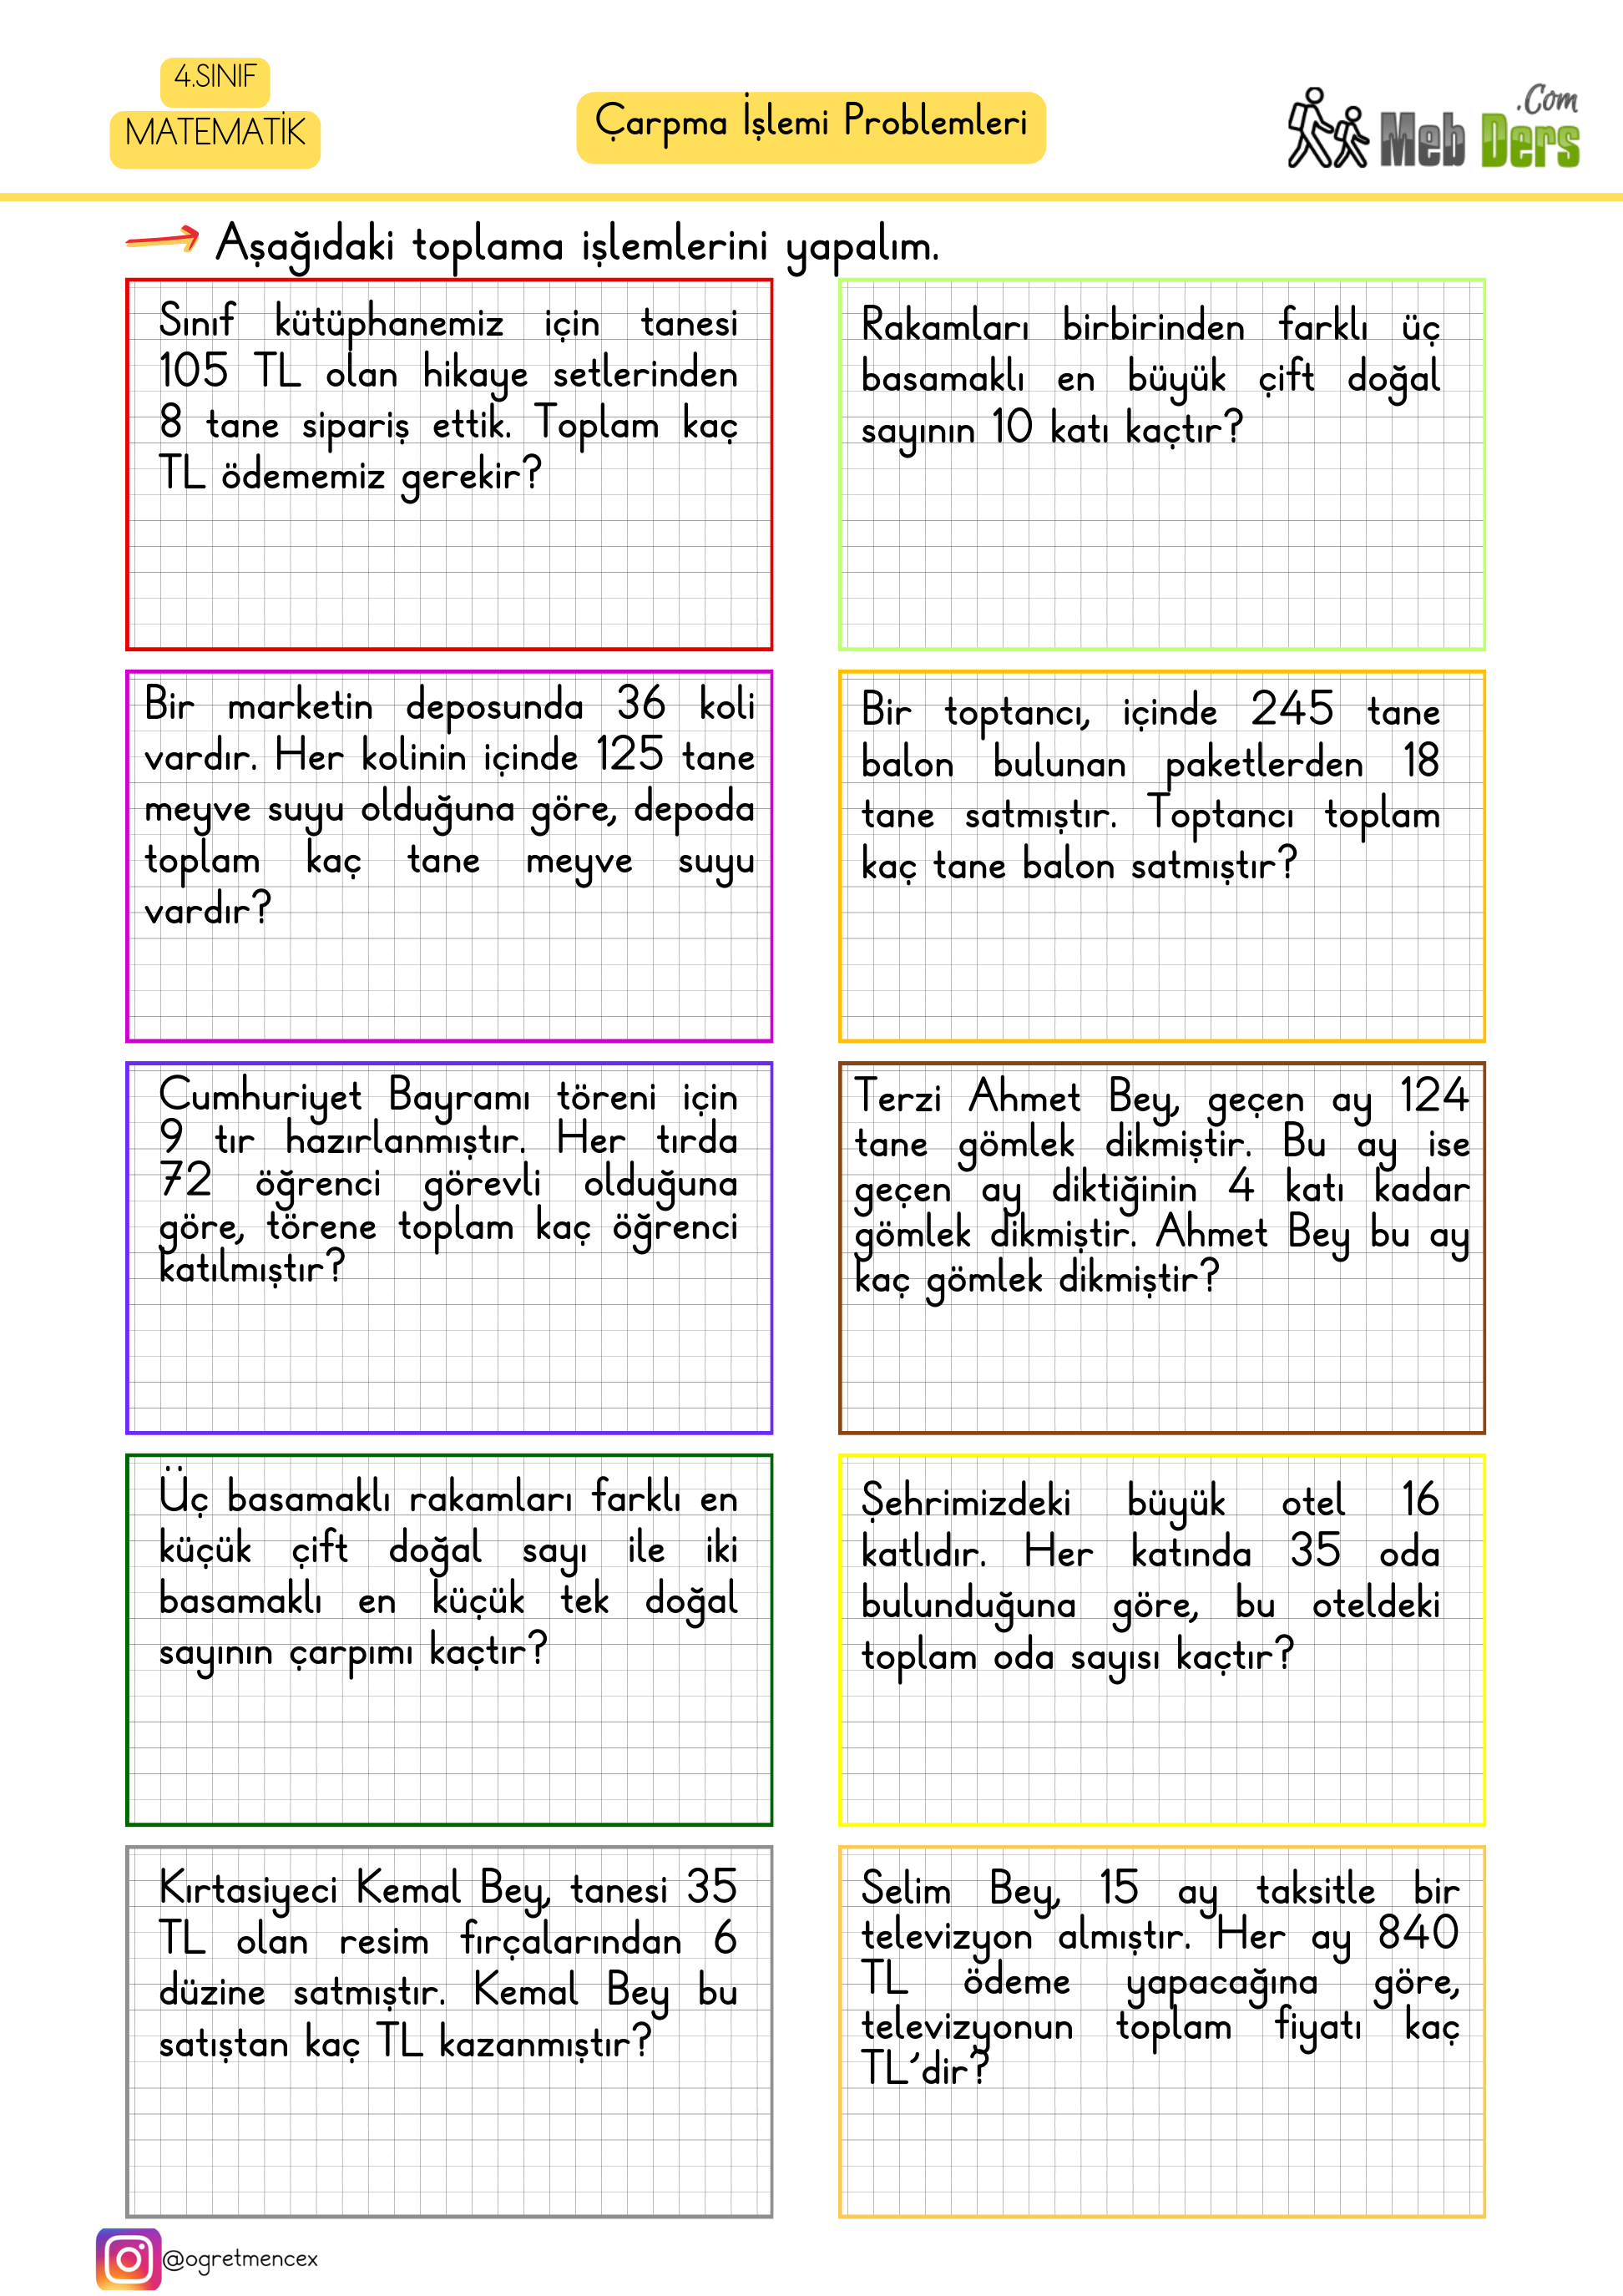 4.SINIF
MATEMATİK
Çarpma İşlemi Problemleri
.Com
Meb Ders
Aşağıdaki toplama işlemlerini yapalım.
Sınıf kütüphanemiz için tanesi
105 TL olan hikaye setlerinden
8 tane sipariş ettik. Toplam kaç
TL ödememiz gerekir?
Rakamları birbirinden farklı üç
basamaklı en büyük çift doğal
sayının 10 katı kaçtır?
Bir marketin deposunda 36 koli
vardır. Her kolinin içinde 125 tane
meyve suyu olduğuna göre, depoda
toplam kaç tane meyve suyu
vardır?
Bir toptancı, içinde 245 tane
balon bulunan paketlerden 18
tane satmıştır. Toptancı toplam
kaç tane balon satmıştır?
Cumhuriyet Bayramı töreni için
9 tır hazırlanmıştır. Her tırda
72 öğrenci görevli olduğuna
göre, törene toplam kaç öğrenci
katılmıştır?
Terzi Ahmet Bey, geçen ay 124
tane gömlek dikmiştir. Bu ay ise
geçen ay diktiğinin 4 katı kadar
gömlek dikmiştir. Ahmet Bey bu ay
kaç gömlek dikmiştir?
Üç basamaklı rakamları farklı en
küçük çift doğal sayı ile iki
basamaklı en küçük tek doğal
sayının çarpımı kaçtır?
Şehrimizdeki büyük otel 16
katlıdır. Her katında 35 oda
bulunduğuna göre, bu oteldeki
toplam oda sayısı kaçtır?
Kırtasiyeci Kemal Bey, tanesi 35
TL olan resim fırçalarından 6
düzine satmıştır. Kemal Bey bu
satıştan kaç TL kazanmıştır?
Selim Bey, 15 ay taksitle bir
televizyon almıştır. Her ay 840
TL ödeme yapacağına göre,
televizyonun toplam fiyatı kaç
TL'dir?
@ogretmencex